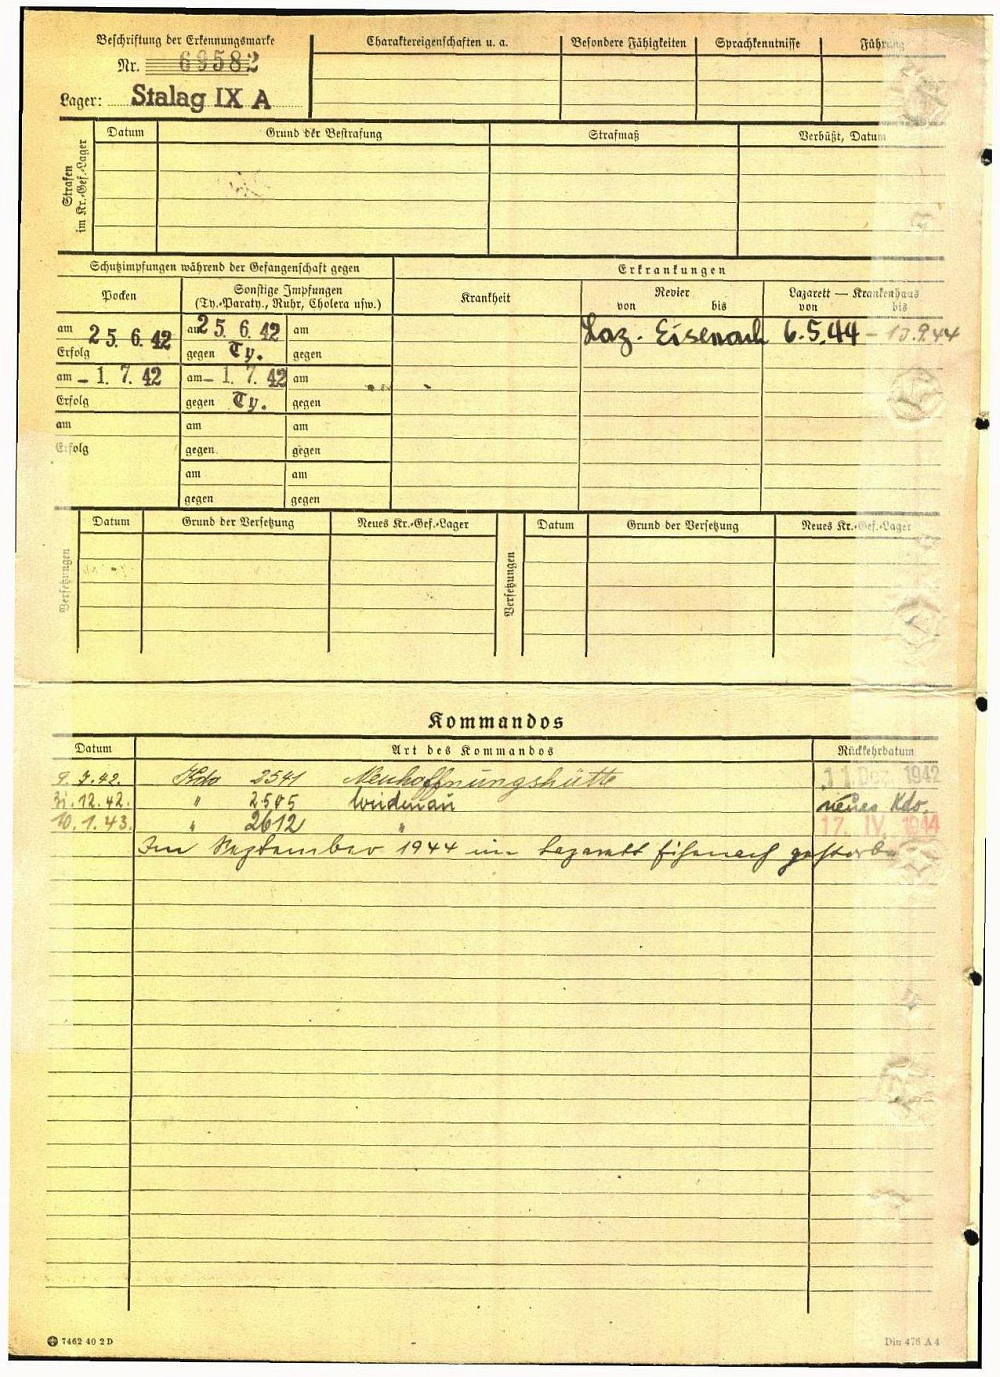 Beschriftung der Erkennungsmarke
Nr. 69582
Lager: Stalag IX A
Charaktereigenschaften u. a.
Besondere Fähigkeiten
Sprachkenntnisse
Führung
Strafen im Kr.-Gef.-Lager
Datum
Grund der Bestrafung
Strafmaß
Verbüßt, Datum
Schutzimpfungen während der Gefangenschaft gegen
Erkrankungen
Pocken
Sonstige Impfungen
(Ty.-Paraty., Ruhr, Cholera usw.)
Krankheit
Revier
von bis
Lazarett — Krankenhaus
von bis
am 25. 6. 42 am 25. 6. 42 am
Erfolg gegen Ty. gegen
Laz. Eisenach 6.5.44 – 13.9.44
am – 1. 7. 42 am – 1. 7. 42 am
Erfolg gegen Ty. gegen
am am am
Erfolg gegen gegen
am am
gegen gegen
Versetzungen
Datum Grund der Versetzung Neues Kr.-Gef.-Lager
Versetzungen
Datum Grund der Versetzung Neues Kr.-Gef.-Lager
Kommandos
Datum Art des Kommandos Rückkehrdatum
9. 7. 42. Kdo 2541 Neuhoffnungshütte 11 Dez. 1942
31. 12. 42. " 2505 neues Kdo.
10. 1. 43. " 2612 " 17. IV. 1944
Im September 1944 im Lazarett Eisenach gestorben
7462 40 2 D
Din 476 A 4